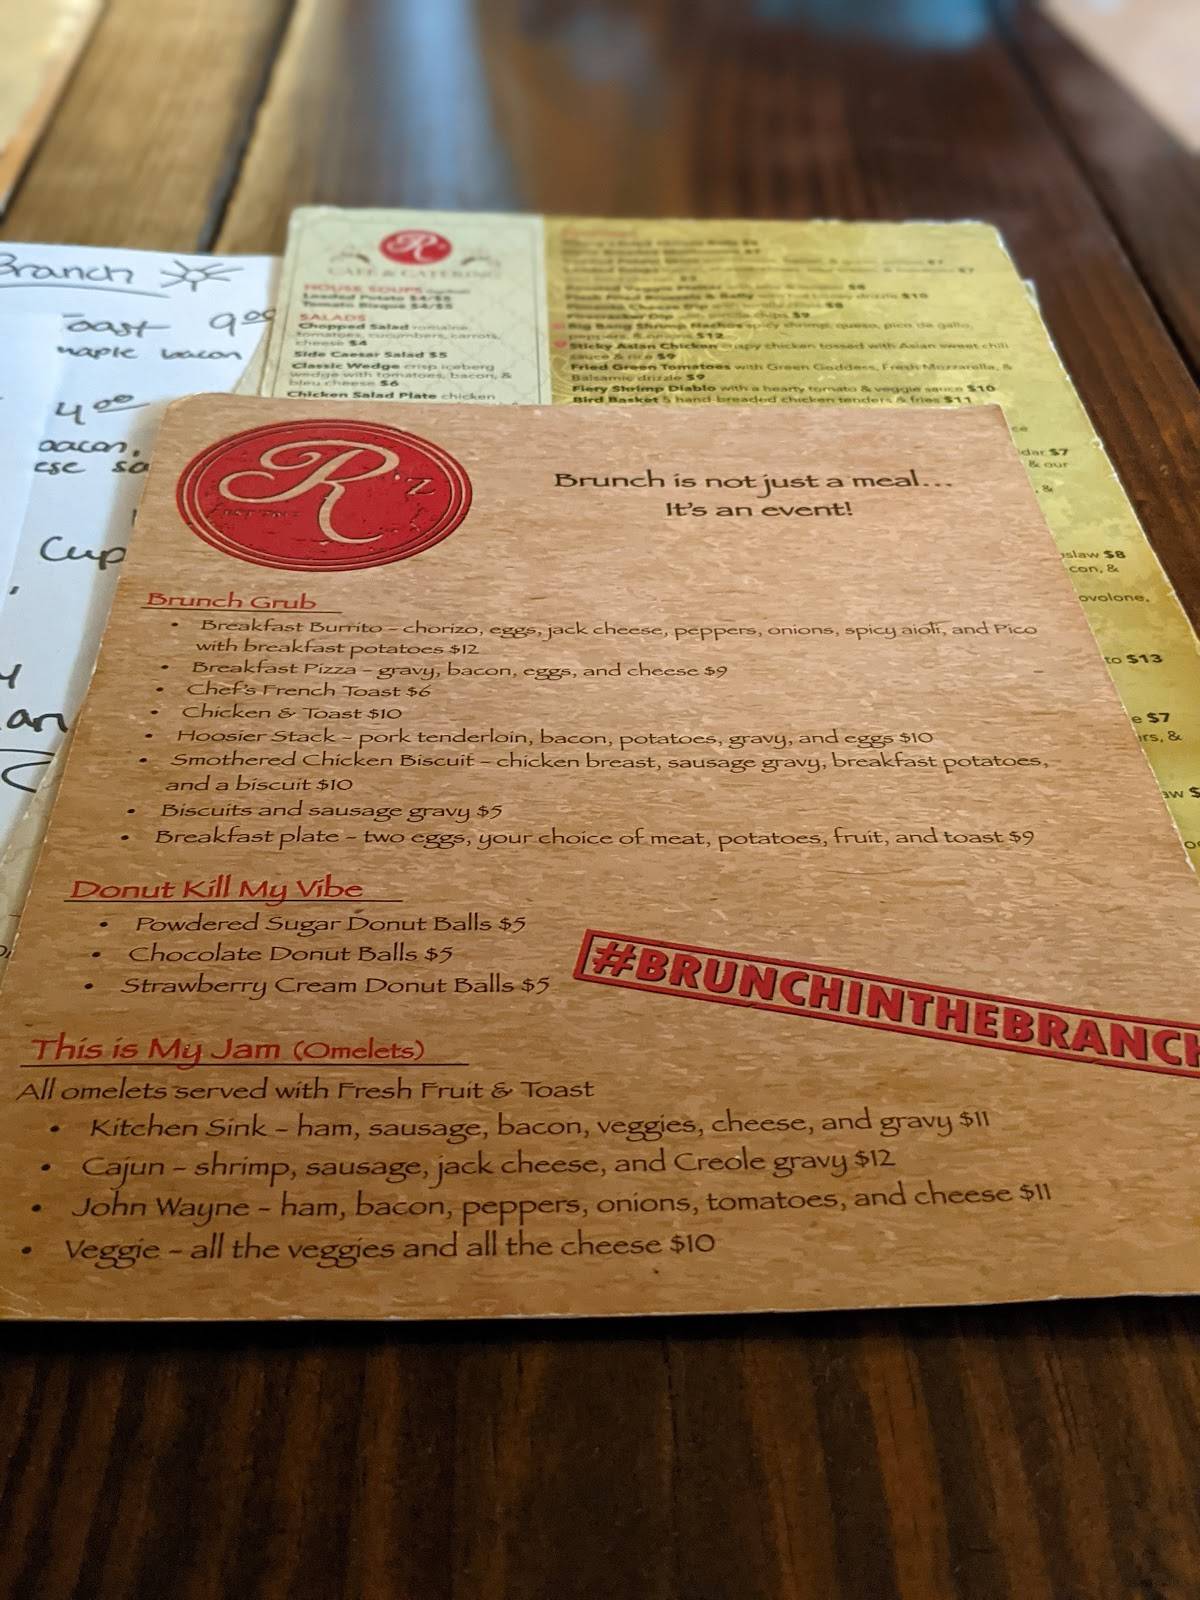 Branch
Toast 9.00
maple bacon
4.00
bacon,
Cup
R'z
CAFE & CATERING
HOUSE SOUPS
Loaded Potato $4/$5
Tomato Bisque $4/$5
SALADS
Chopped Salad romaine,
tomatoes, cucumbers, carrots,
cheese $4
Side Caesar Salad $5
Classic Wedge crisp iceberg
wedge with tomatoes, bacon, &
bleu cheese $6
Chicken Salad Plate chicken
Big Bang Shrimp Nachos spicy shrimp, queso, pico de gallo,
$12
Sticky Asian Chicken crispy chicken tossed with Asian sweet chili
sauce & rice $9
Fried Green Tomatoes with Green Goddess, Fresh Mozzarella, &
Balsamic drizzle $9
Fiery Shrimp Diablo with a hearty tomato & veggie sauce $10
Bird Basket 5 hand-breaded chicken tenders & fries $11
$7
& our
&
slaw $8
con, &
ovolone,
to $13
e $7
rs, &
R'z
Brunch is not just a meal...
It's an event!
Brunch Grub
• Breakfast Burrito – chorizo, eggs, jack cheese, peppers, onions, spicy aioli, and Pico
with breakfast potatoes $12
• Breakfast Pizza – gravy, bacon, eggs, and cheese $9
• Chef's French Toast $6
• Chicken & Toast $10
• Hoosier Stack – pork tenderloin, bacon, potatoes, gravy, and eggs $10
• Smothered Chicken Biscuit – chicken breast, sausage gravy, breakfast potatoes,
and a biscuit $10
• Biscuits and sausage gravy $5
• Breakfast plate – two eggs, your choice of meat, potatoes, fruit, and toast $9
Donut Kill My Vibe
• Powdered Sugar Donut Balls $5
• Chocolate Donut Balls $5
• Strawberry Cream Donut Balls $5
#BRUNCHINTHEBRANCH
This is My Jam (Omelets)
All omelets served with Fresh Fruit & Toast
• Kitchen Sink – ham, sausage, bacon, veggies, cheese, and gravy $11
• Cajun – shrimp, sausage, jack cheese, and Creole gravy $12
• John Wayne – ham, bacon, peppers, onions, tomatoes, and cheese $11
• Veggie – all the veggies and all the cheese $10